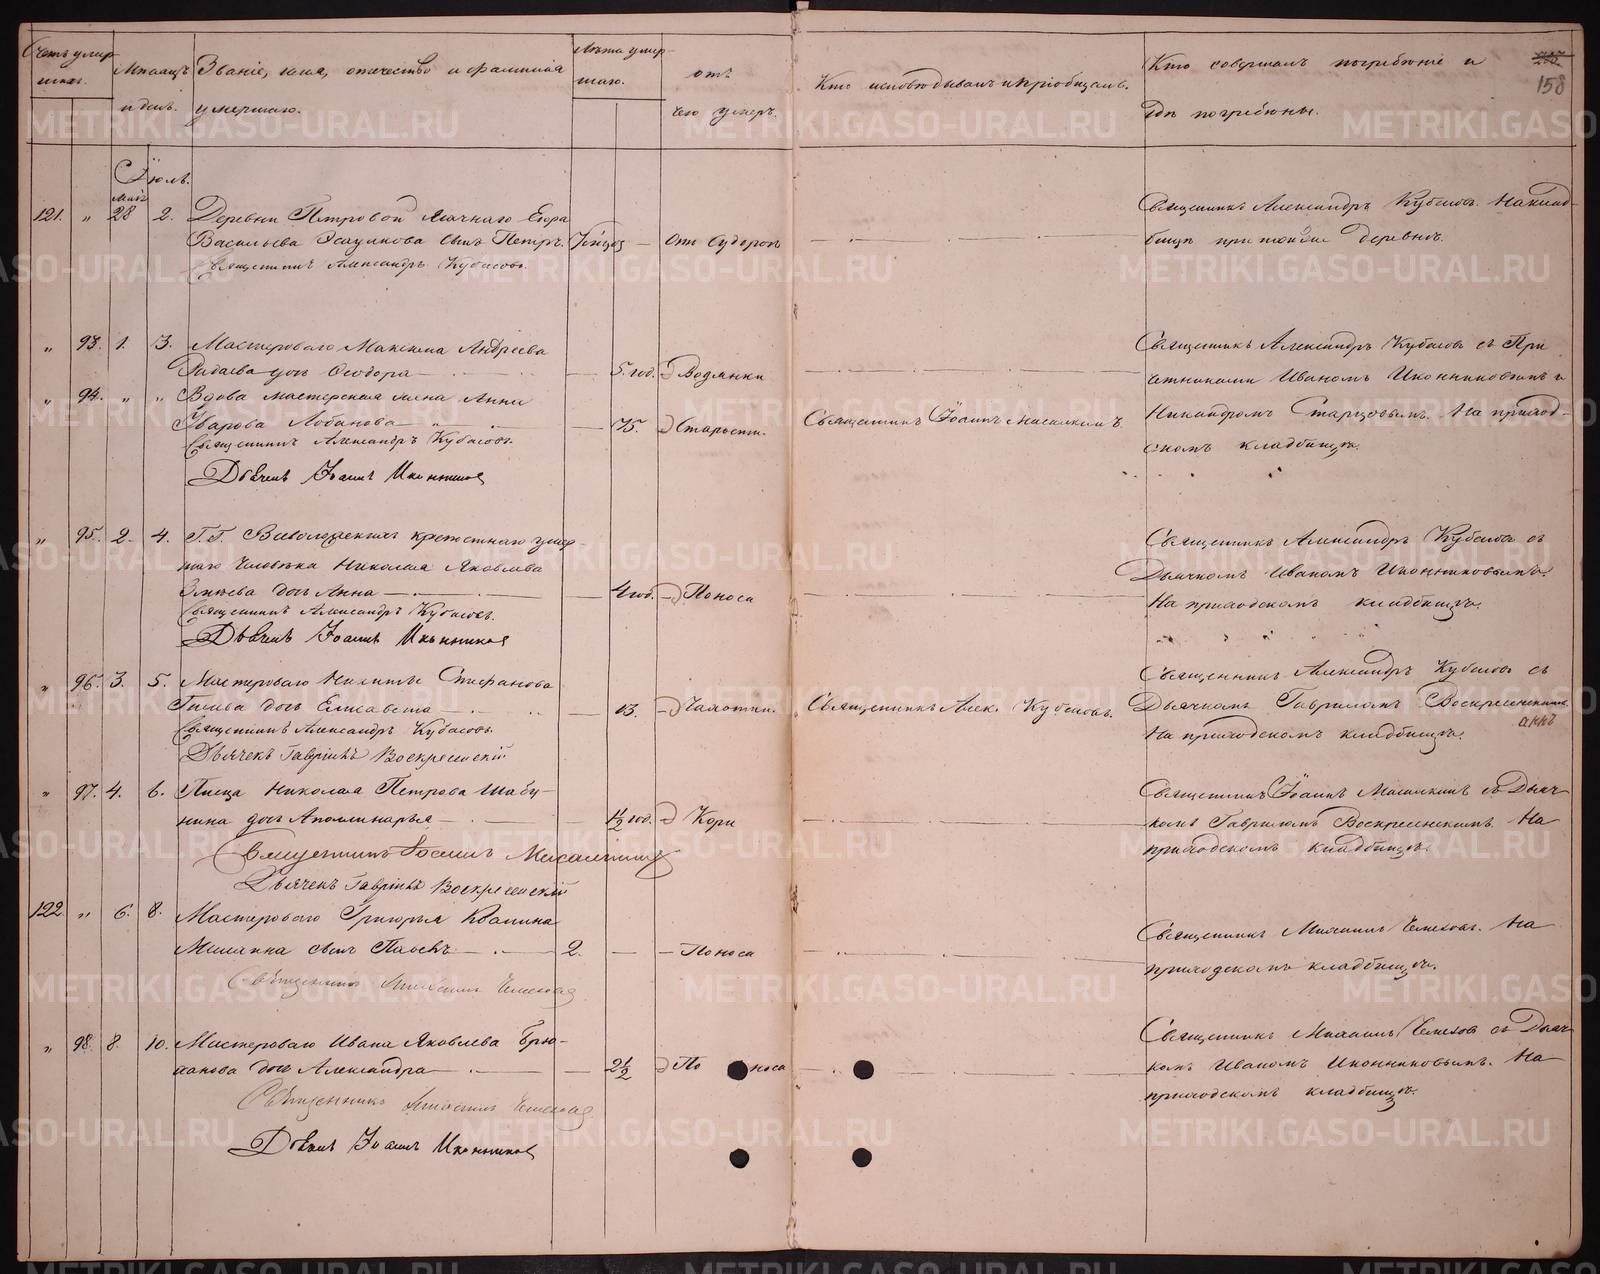 Счетъ умер-
шихъ.
Мѣсяцъ
и день.
Званіе, имя, отечество и фамилія
умершаго.
Лѣта умер-
шаго.
отъ
чего умеръ.
Кто исповѣдывалъ и пріобщалъ.
Кто совершалъ погребеніе и
гдѣ погребены.
158
Іюль.
121. " 28 2. Деревни Петровой
Васильева сынъ Петръ. — Отъ судорогъ
Священникъ Александръ Кубасовъ.
Священникъ Александръ Кубасовъ. На клад-
бищѣ при той же деревнѣ.
" 93. 1. 3. Мастероваго Максима Андреева
дочь Ѳеодора — 5. год. Водянки
" 94. " " Вдова мастерская жена Анна
Уварова Лобанова — 75. Старости.
Священникъ Александръ Кубасовъ.
Дьячекъ Іоаннъ Иконниковъ
Священникъ Іоаннъ
Священникъ Александръ Кубасовъ съ При-
четниками Иваномъ Иконниковымъ и
Никандромъ Старцовымъ. На приход-
скомъ кладбищѣ.
" 95. 2. 4. Г.Г. Всеволожскихъ крѣпостнаго умер-
шаго человѣка Николая Яковлева
дочь Анна — 4 год. Поноса
Священникъ Александръ Кубасовъ.
Дьячекъ Іоаннъ Иконниковъ
Священникъ Александръ Кубасовъ съ
Дьячкомъ Иваномъ Иконниковымъ.
На приходскомъ кладбищѣ.
" 96. 3. 5. Мастероваго Никиты Стефанова
дочь Елисавета — 13. Чахотки.
Священникъ Александръ Кубасовъ.
Дьячекъ Гавріилъ Воскресенскій
Священникъ Алек. Кубасовъ.
Священникъ Александръ Кубасовъ съ
Дьячкомъ Гавриломъ Воскресенскимъ.
На приходскомъ кладбищѣ.
" 97. 4. 6. Писца Николая Петрова Шабу-
нина дочь Аполлинарья — 1½ год. Кори
Священникъ Іоаннъ
Дьячекъ Гавріилъ Воскресенскій
Священникъ Іоаннъ съ Дьяч-
комъ Гавриломъ Воскресенскимъ. На
приходскомъ кладбищѣ.
122. " 6. 8. Мастероваго Григорья
сынъ — 2. — Поноса
Священникъ Михаилъ
Священникъ Михаилъ На
приходскомъ кладбищѣ.
" 98. 8. 10. Мастероваго Ивана Яковлева Брю-
ханова дочь Александра — 2½ Поноса
Священникъ Михаилъ
Дьячекъ Іоаннъ Иконниковъ
Священникъ Михаилъ съ Дьяч-
комъ Иваномъ Иконниковымъ. На
приходскомъ кладбищѣ.
METRIKI.GASO-URAL.RU